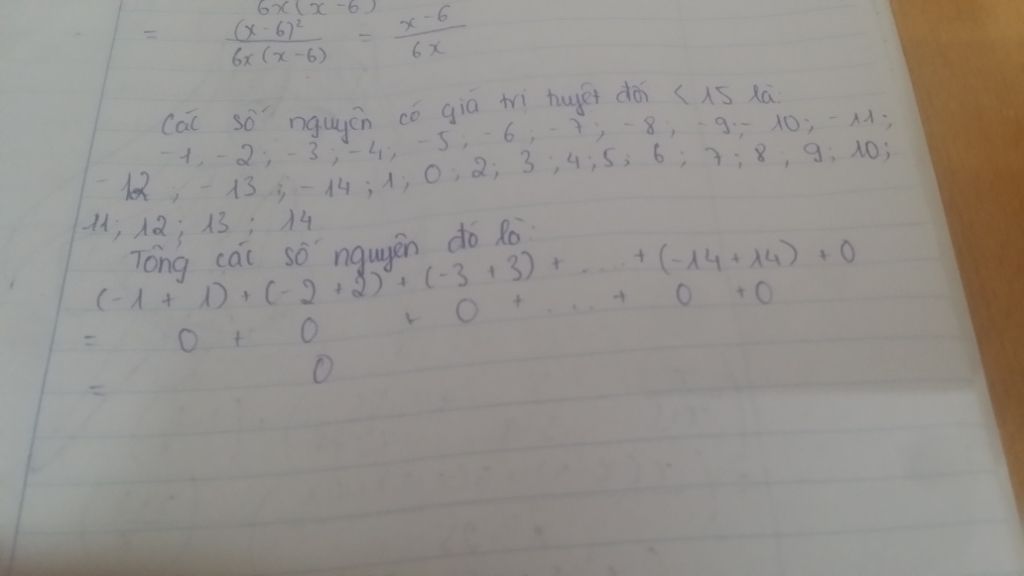 6x(x-6)
= (x-6)² / 6x(x-6) = x-6 / 6x
Các số nguyên có giá trị tuyệt đối < 15 là:
-1, -2; -3; -4; -5; -6; -7; -8; -9; -10; -11;
-12; -13; -14; 1, 0; 2; 3; 4; 5; 6; 7; 8, 9; 10;
11; 12; 13; 14
Tổng các số nguyên đó là:
(-1 + 1) + (-2 + 2) + (-3 + 3) + .... + (-14 + 14) + 0
= 0 + 0 + 0 + .... + 0 + 0
= 0